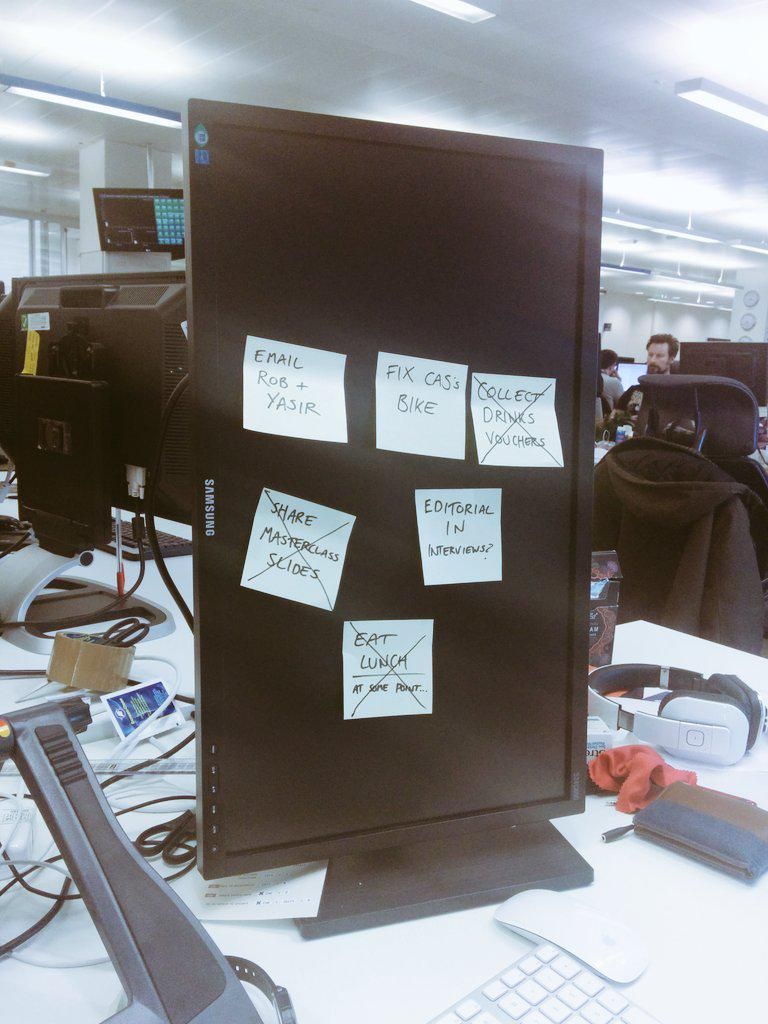 EMAIL
ROB +
YASIR
FIX CAS's
BIKE
COLLECT
DRINKS
VOUCHERS
SHARE
MASTERCLASS
SLIDES
EDITORIAL
IN
INTERVIEWS?
EAT
LUNCH
AT SOME POINT...
SAMSUNG